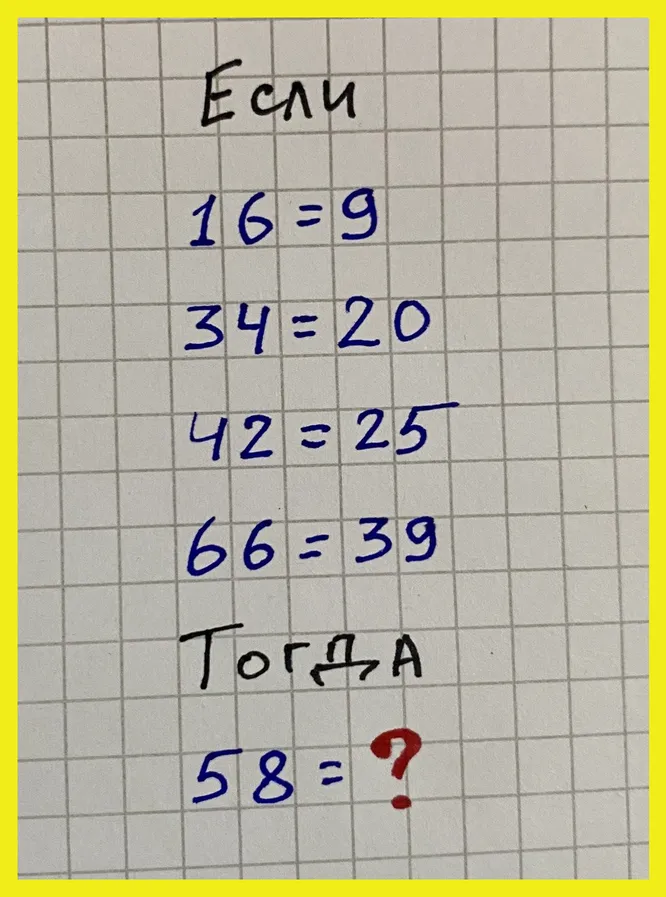 Если
16=9
34=20
42=25
66=39
Тогда
58=?